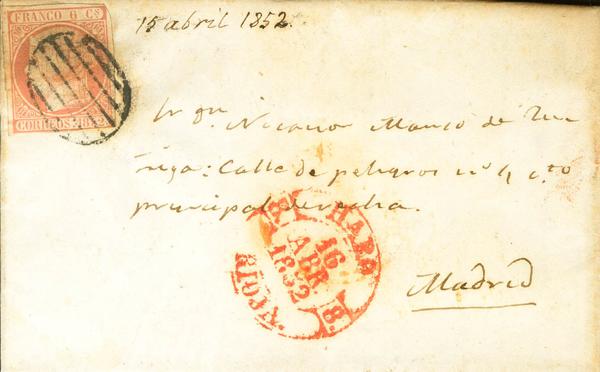 FRANCO 6 Cs
CORREOS 1852
15 abril 1852.
Sr Dn Nicanor Manso de Zu
ñiga: Calle de peligros nº 4 cto
principal derecha.
Madrid
HARO
16
ABR
1852
RIOJA
8.